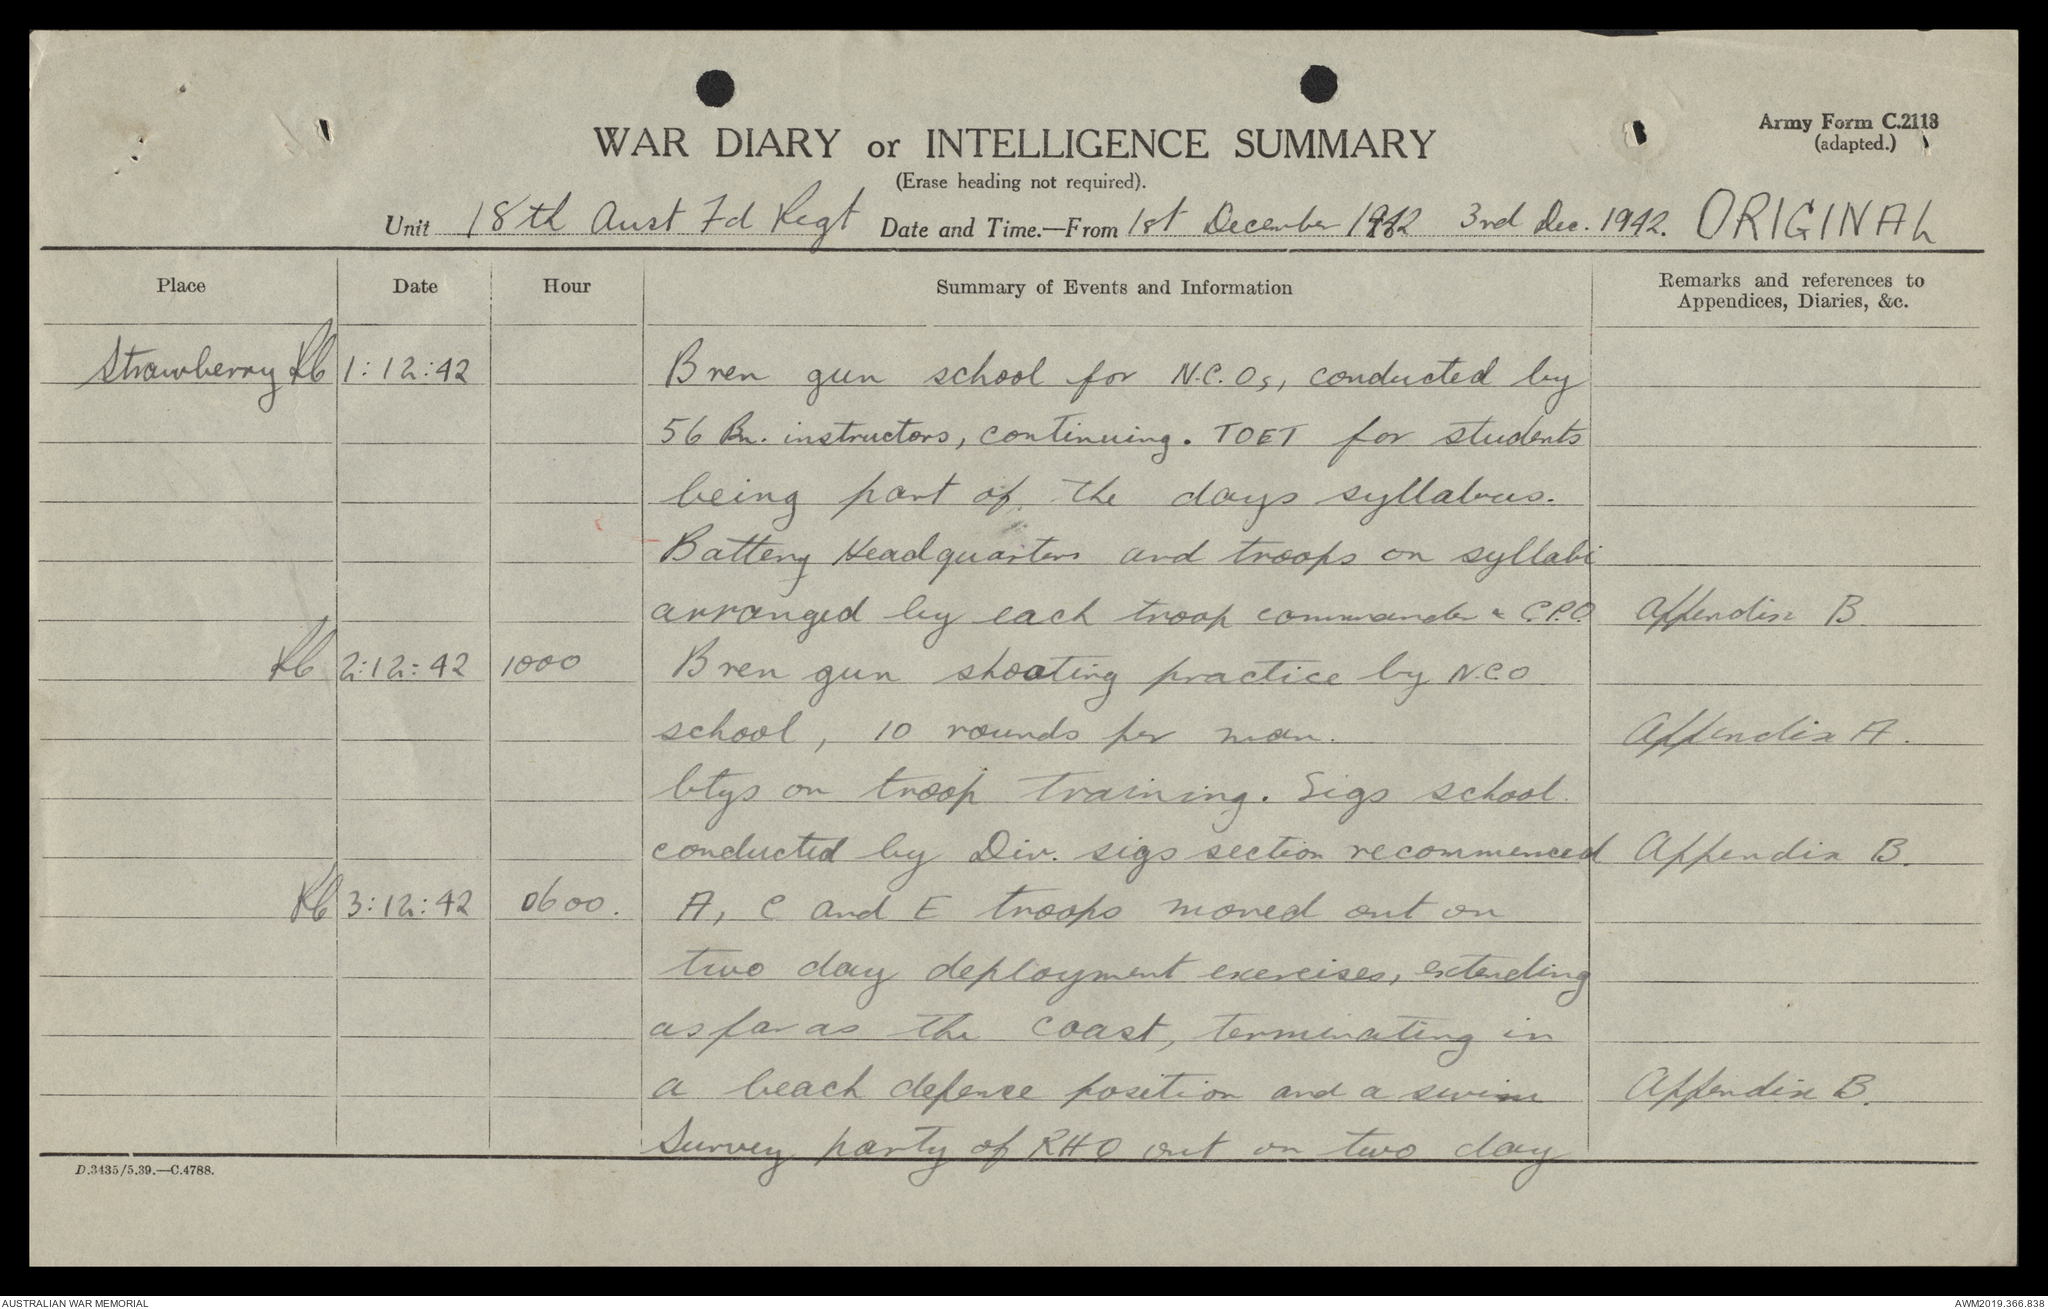 Army Form C.2118
(adapted.)
WAR DIARY or INTELLIGENCE SUMMARY
(Erase heading not required).
Unit 18th Aust Fd Regt Date and Time.—From 1st December 1942 3rd Dec. 1942. ORIGINAL
Place Date Hour Summary of Events and Information Remarks and references to
Appendices, Diaries, &c.
Strawberry 1:12:42 Bren gun school for N.C.Os, conducted by
56 Bn. instructors, continuing. TOET for students
being part of the days syllabus.
Battery Headquarters and troops on syllabi
arranged by each troop commander & C.P.O. Appendix B
2:12:42 1000 Bren gun shooting practice by N.C.O
school, 10 rounds per man. Appendix A.
btys on troop training. Sigs school
conducted by Div. sigs section recommenced Appendix B.
3:12:42 0600. A, C and E troops moved out on
two day deployment exercises, extending
as far as the coast, terminating in
a beach defence position and a swim Appendix B.
Survey party of RHQ out on two day
D.3435/5.39.—C.4788.
AUSTRALIAN WAR MEMORIAL AWM2019.366.838